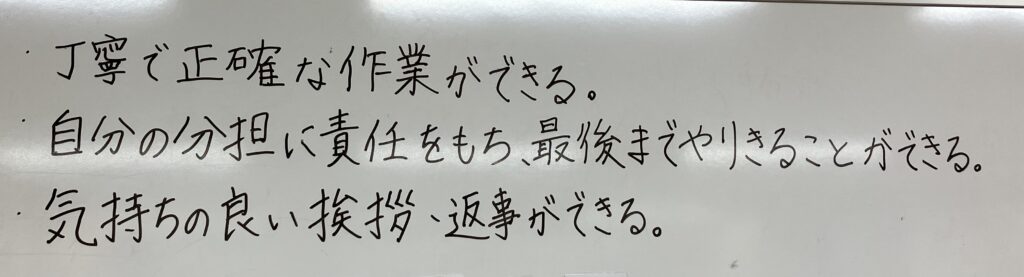 ・丁寧で正確な作業ができる。
・自分の分担に責任をもち、最後までやりきることができる。
・気持ちの良い挨拶、返事ができる。